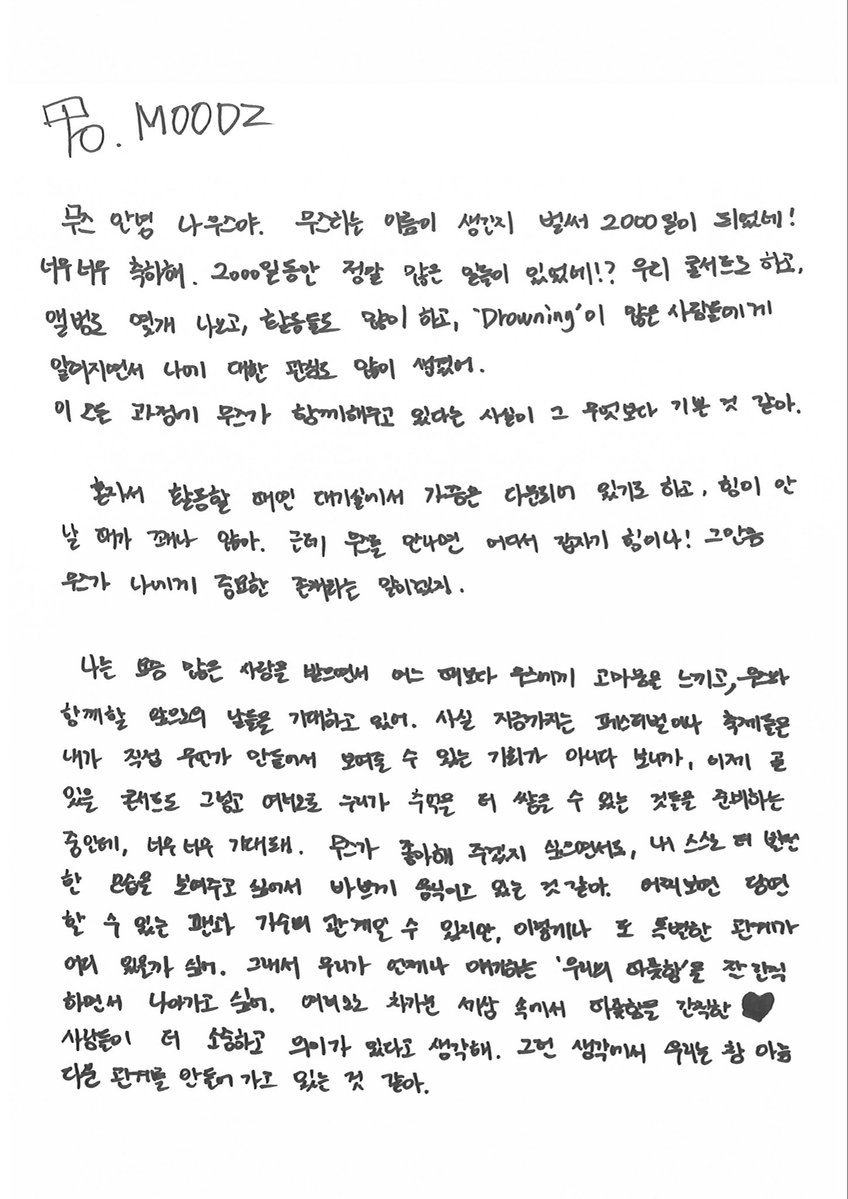 To. MOODZ
무즈 안녕 나 우즈야. 무즈라는 이름이 생긴지 벌써 2000일이 되었네!
너무너무 축하해. 2000일동안 정말 많은 일들이 있었네!? 우리 콘서트도 하고,
앨범도 몇개 나오고, 활동들도 많이 하고, 'Drowning'이 많은 사람들에게
알려지면서 나에 대한 관심도 많이 생겼어.
이 모든 과정에 무즈가 함께해주고 있다는 사실이 그 무엇보다 기쁜 것 같아.
혼자서 활동할 때면 대기실에서 가끔은 다운되어 있기도 하고, 힘이 안
날 때가 꽤나 많아. 근데 무즈를 만나면 어디서 갑자기 힘이나! 그만큼
무즈가 나에게 중요한 존재라는 말이겠지.
나는 요즘 많은 사랑을 받으면서 어느 때보다 무즈에게 고마움을 느끼고, 무즈와
함께할 앞으로의 날들을 기대하고 있어. 사실 지금까지는 페스티벌이나 축제들은
내가 직접 무언가 만들어서 보여줄 수 있는 기회가 아니다 보니까, 이제 곧
있을 콘서트도 그렇고 여러모로 우리가 추억을 더 쌓을 수 있는 것들을 준비하는
중인데, 너무너무 기대돼. 무즈가 좋아해 주겠지 싶으면서도, 내 스스로 더 발전
한 모습을 보여주고 싶어서 바쁘게 움직이고 있는 것 같아. 어찌보면 당연
할 수 있는 팬과 가수의 관계일 수 있지만, 이렇게나 또 특별한 관계가
어디 있을까 싶어. 그래서 우리가 언제나 얘기하는 '우리의 따뜻함'을 잘 간직
하면서 나아가고 싶어. 여러모로 차가운 세상 속에서 따뜻함을 간직한 ♥
사람들이 더 소중하고 의미가 있다고 생각해. 그런 생각에서 우리는 참 아름
다운 관계를 만들어 가고 있는 것 같아.